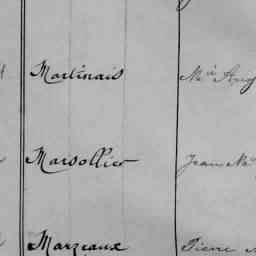 Martinais Mie Aug
Marsollier Jean Mie
Marzeaux Pierre